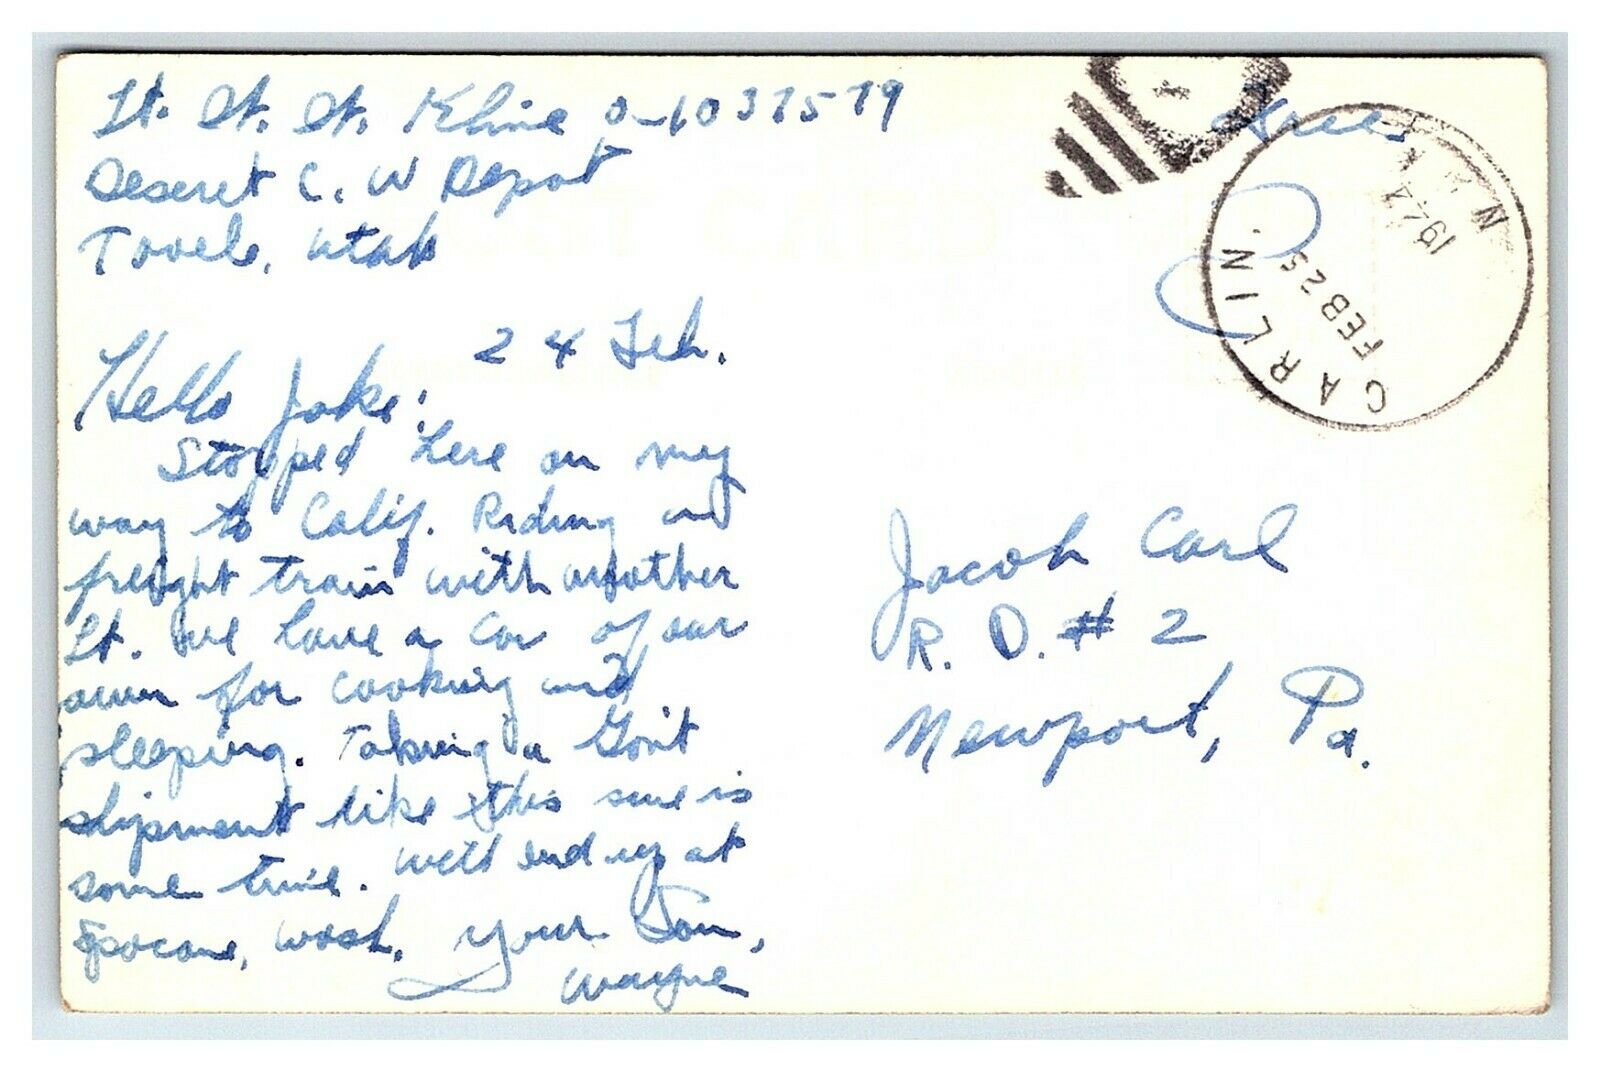 Lt. A. A. Kline O-1037579
Deseret C. W Depot
Tooele, Utah
24 Feb.
Hello Jake:
Stopped here on my
way to Calif. Riding on
freight train with another
Lt. We have a car of our
own for cooking and
sleeping. Taking a Gov't
shipment like this one is
some time. We'll end up at
Spocane, Wash. Your Son,
Wayne
Free
CARLIN.
FEB 25
1944
Jacob Carl
R. D. # 2
Newport, Pa.